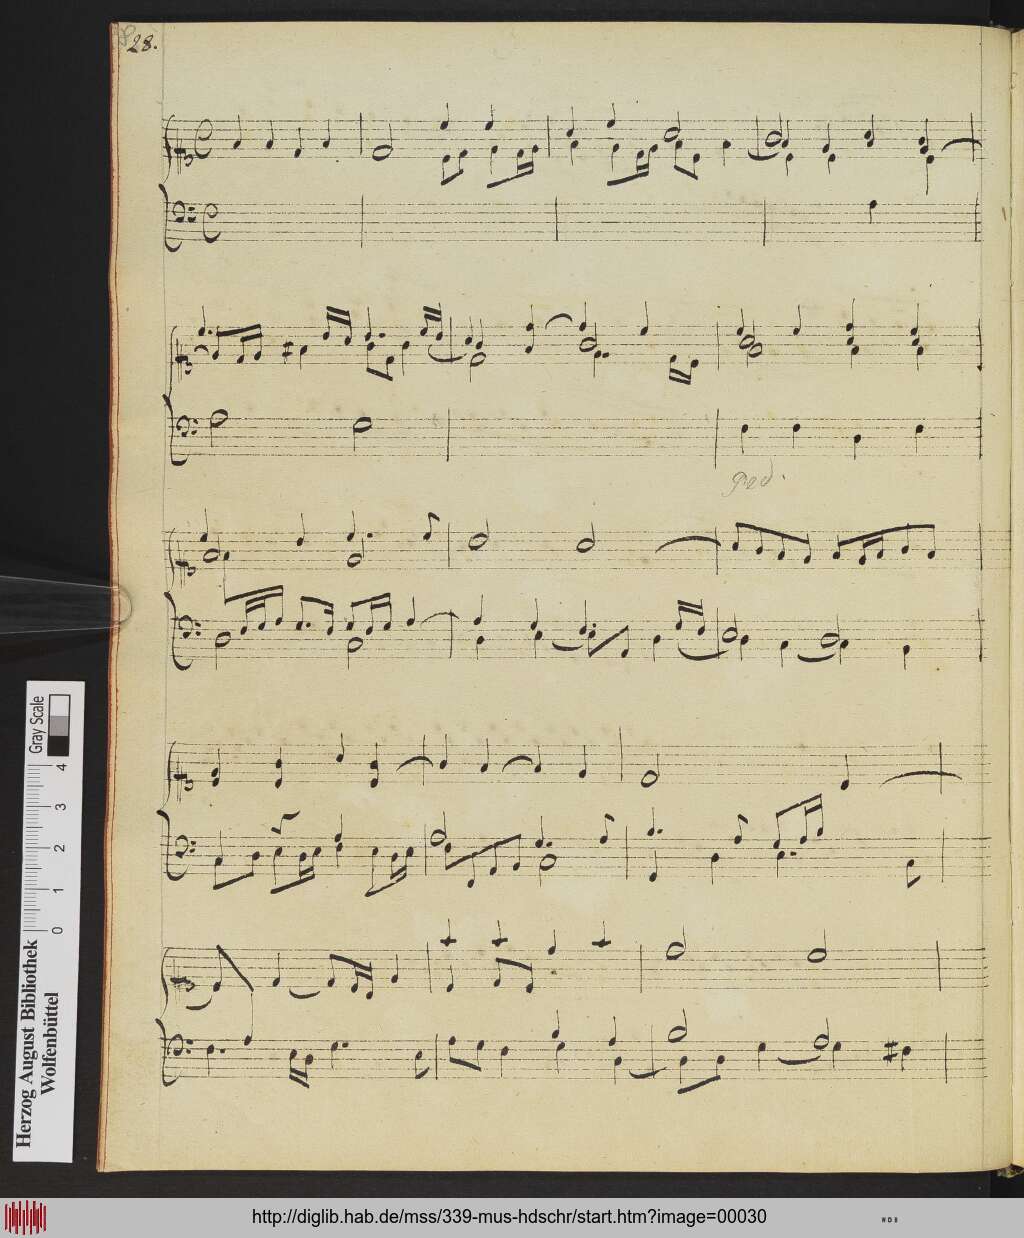 28.
Ped.
Gray Scale
4
3
2
1
0
Herzog August Bibliothek
Wolfenbüttel
http://diglib.hab.de/mss/339-mus-hdschr/start.htm?image=00030